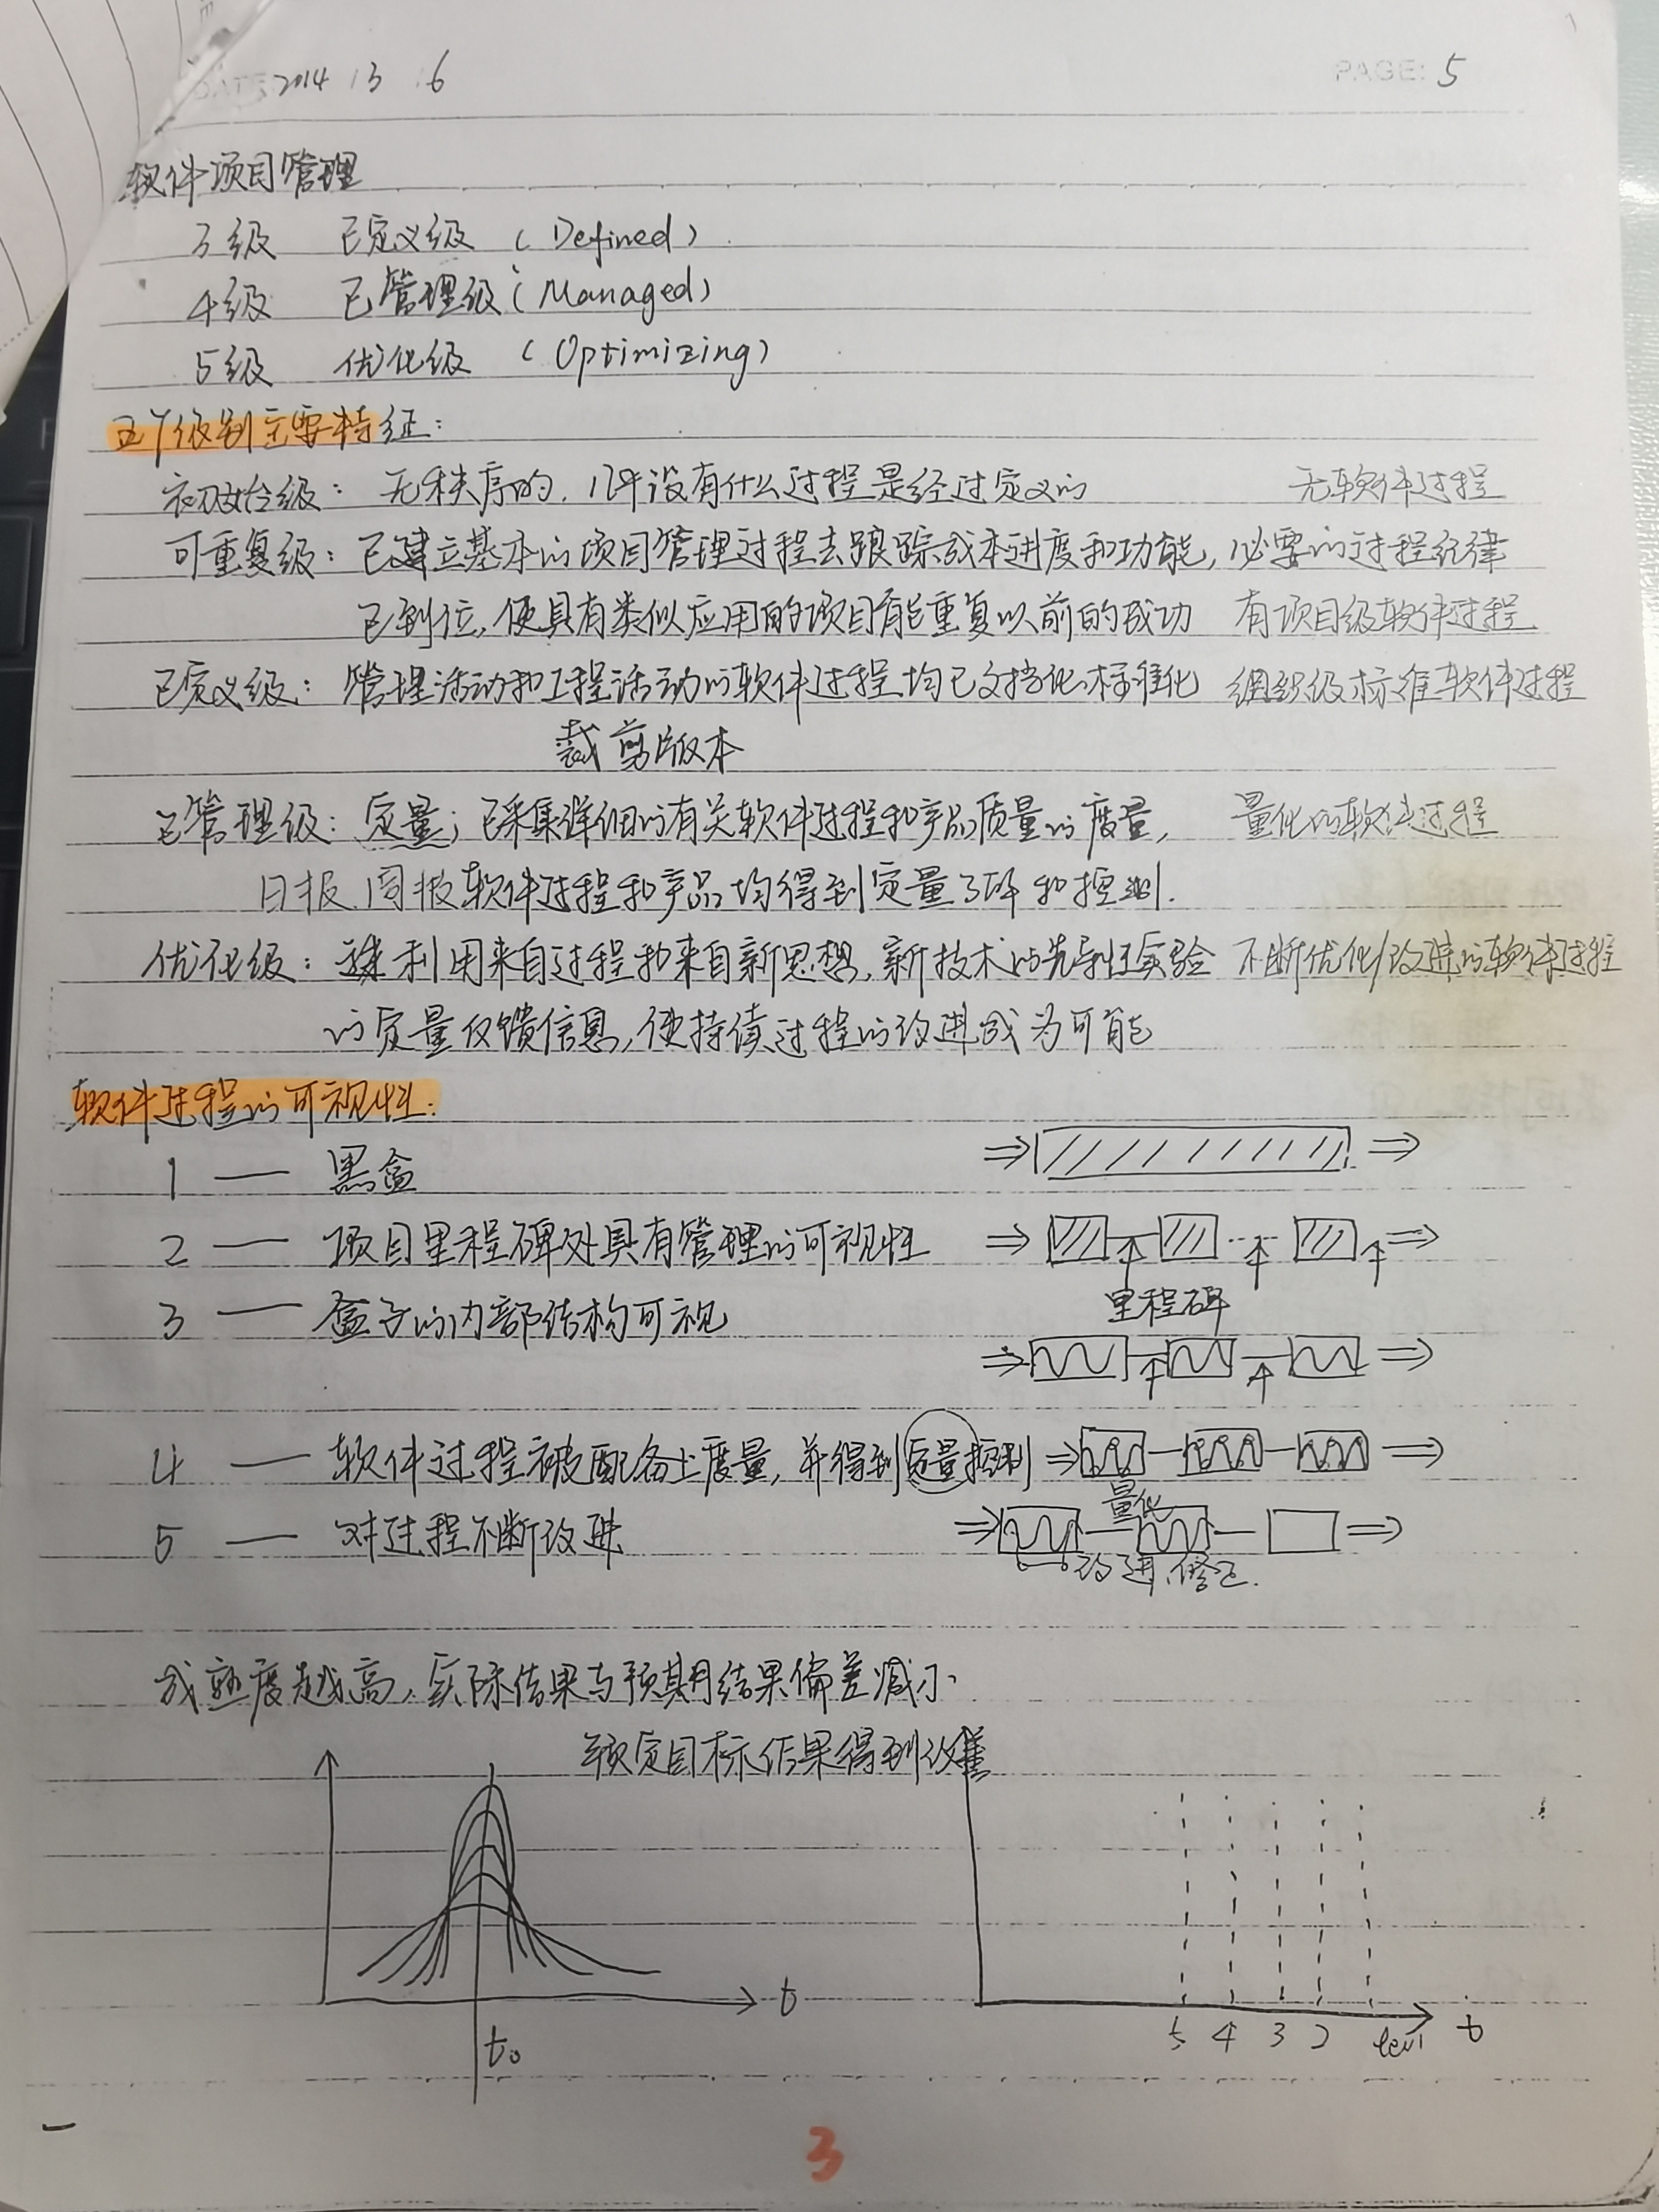 DATE 2014 3 6
PAGE: 5
软件项目管理
3级 已定义级 (Defined)
4级 已管理级 (Managed)
5级 优化级 (Optimizing)
五个级别主要特征:
初始级: 无秩序的, 几乎没有什么过程是经过定义的 无软件过程
可重复级: 已建立基本的项目管理过程去跟踪成本进度和功能, 必要的过程纪律
已到位, 使具有类似应用的项目能重复以前的成功 有项目级软件过程
已定义级: 管理活动和工程活动的软件过程均已文档化、标准化 组织级标准软件过程
裁剪版本
已管理级: 定量; 已采集详细的有关软件过程和产品质量的度量, 量化的软件过程
日报 周报 软件过程和产品均得到定量了解和控制.
优化级: 利用来自过程和来自新思想, 新技术的先导性实验 不断优化/改进的软件过程
的定量反馈信息, 使持续过程的改进成为可能
软件过程的可视性:
1 — 黑盒
2 — 项目里程碑处具有管理的可视性
里程碑
3 — 盒子的内部结构可视
4 — 软件过程被配备上度量, 并得到定量控制
量化
5 — 对过程不断改进
改进、修正.
成熟度越高, 实际结果与预期结果偏差减小
预定目标结果得到改善
t
t₀
5 4 3 2 t
3